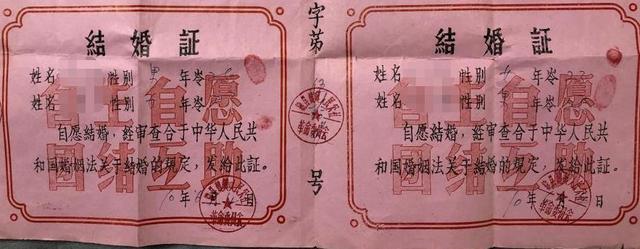 結婚証
姓名 性别 男 年岺
姓名 性别 年岺
自主自愿
自愿結婚，経审查合于中华人民共
和国婚姻法关于結婚的規定，发给此証。
团结互助
70年 月 日
革命委員会
字第
号
革命委員会
結婚証
姓名 性别 女 年岺
姓名 性别 男 年岺
自主自愿
自愿結婚，経审查合于中华人民共
和国婚姻法关于結婚的規定，发给此証。
团结互助
70年 月 日
革命委員会